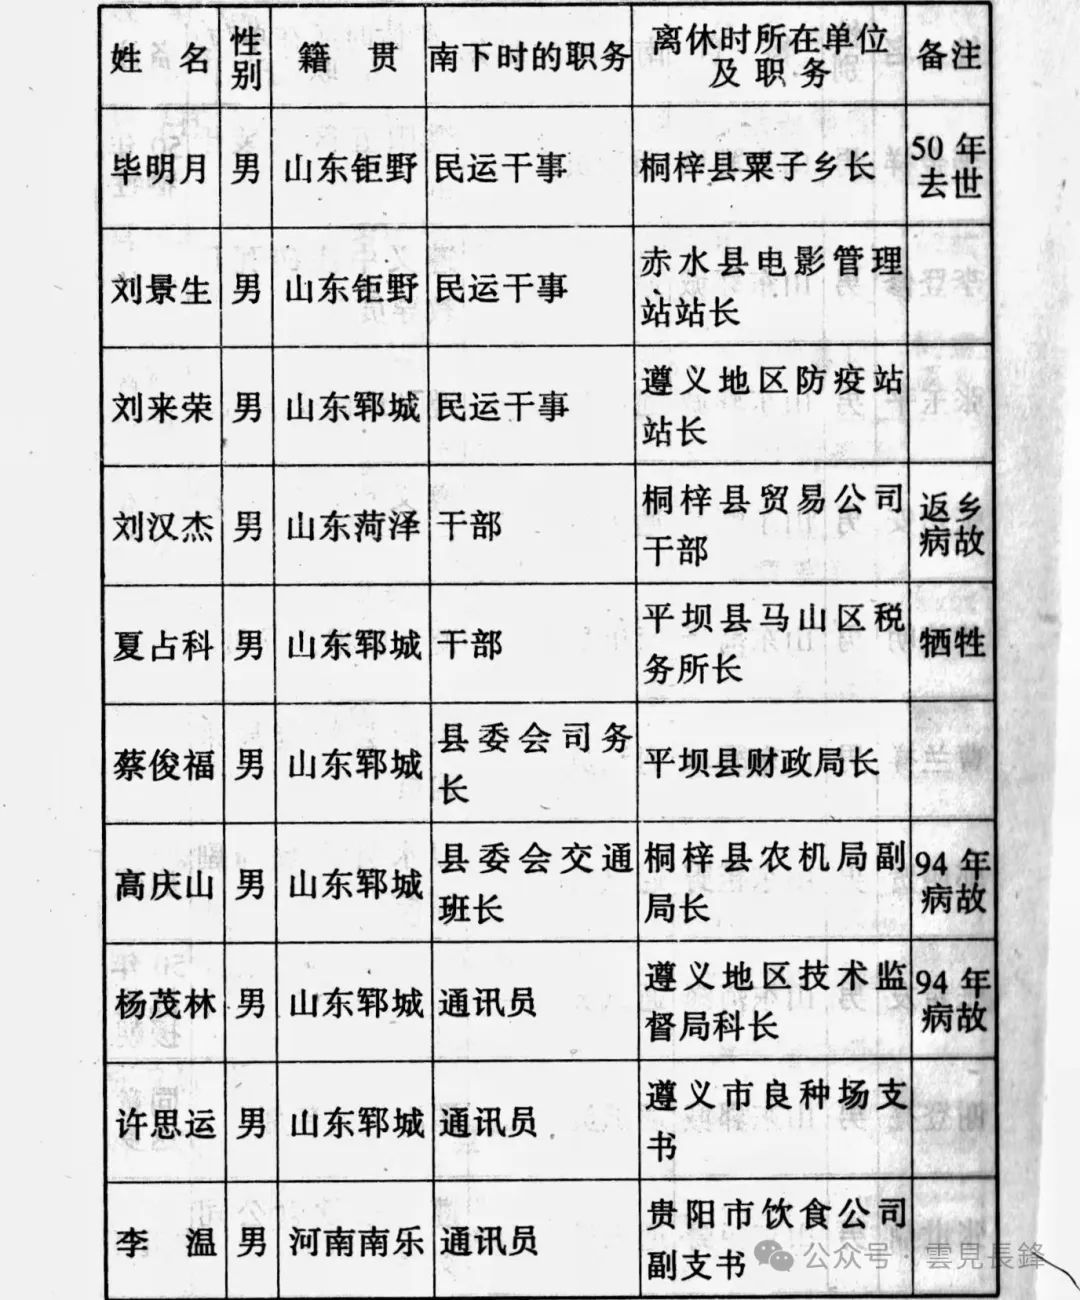 姓名 性别 籍贯 南下时的职务 离休时所在单位及职务 备注
毕明月 男 山东钜野 民运干事 桐梓县粟子乡长 50年去世
刘景生 男 山东钜野 民运干事 赤水县电影管理站站长
刘来荣 男 山东郓城 民运干事 遵义地区防疫站站长
刘汉杰 男 山东菏泽 干部 桐梓县贸易公司干部 返乡病故
夏占科 男 山东郓城 干部 平坝县马山区税务所长 牺牲
蔡俊福 男 山东郓城 县委会司务长 平坝县财政局长
高庆山 男 山东郓城 县委会交通班长 桐梓县农机局副局长 94年病故
杨茂林 男 山东郓城 通讯员 遵义地区技术监督局科长 94年病故
许思运 男 山东郓城 通讯员 遵义市良种场支书
李温 男 河南南乐 通讯员 贵阳市饮食公司副支书
公众号·雲見長鋒